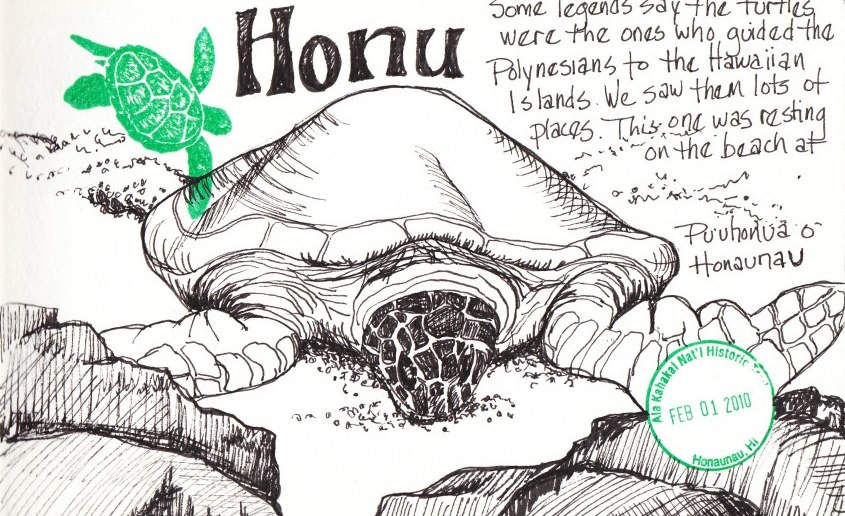 Honu
Some legends say the turtles
were the ones who guided the
Polynesians to the Hawaiian
Islands. We saw them lots of
places. This one was resting
on the beach at
Pu'uhonua o
Honaunau
Ala Kahakai Nat'l Historic
FEB 01 2010
Honaunau, Hi